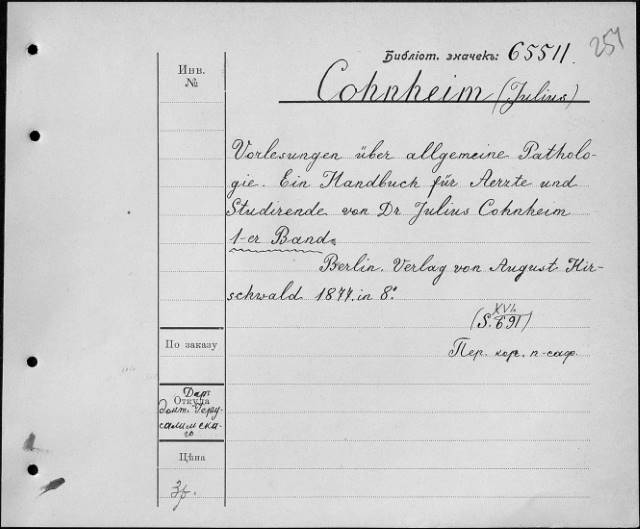 254
Библіот. значекъ: 65511.
Инв. №
Cohnheim (Julius)
Vorlesungen über allgemeine Patholo-
gie. Ein Handbuch für Aerzte und
Studirende von Dr Julius Cohnheim
1-er Band.
Berlin. Verlag von August Hir-
schwald 1877. in 8°.
XVI
(S. 691)
Пер. кор. п-саф.
По заказу
Откуда
Дар
докт. Іеру-
салимска-
го
Цѣна
3р.